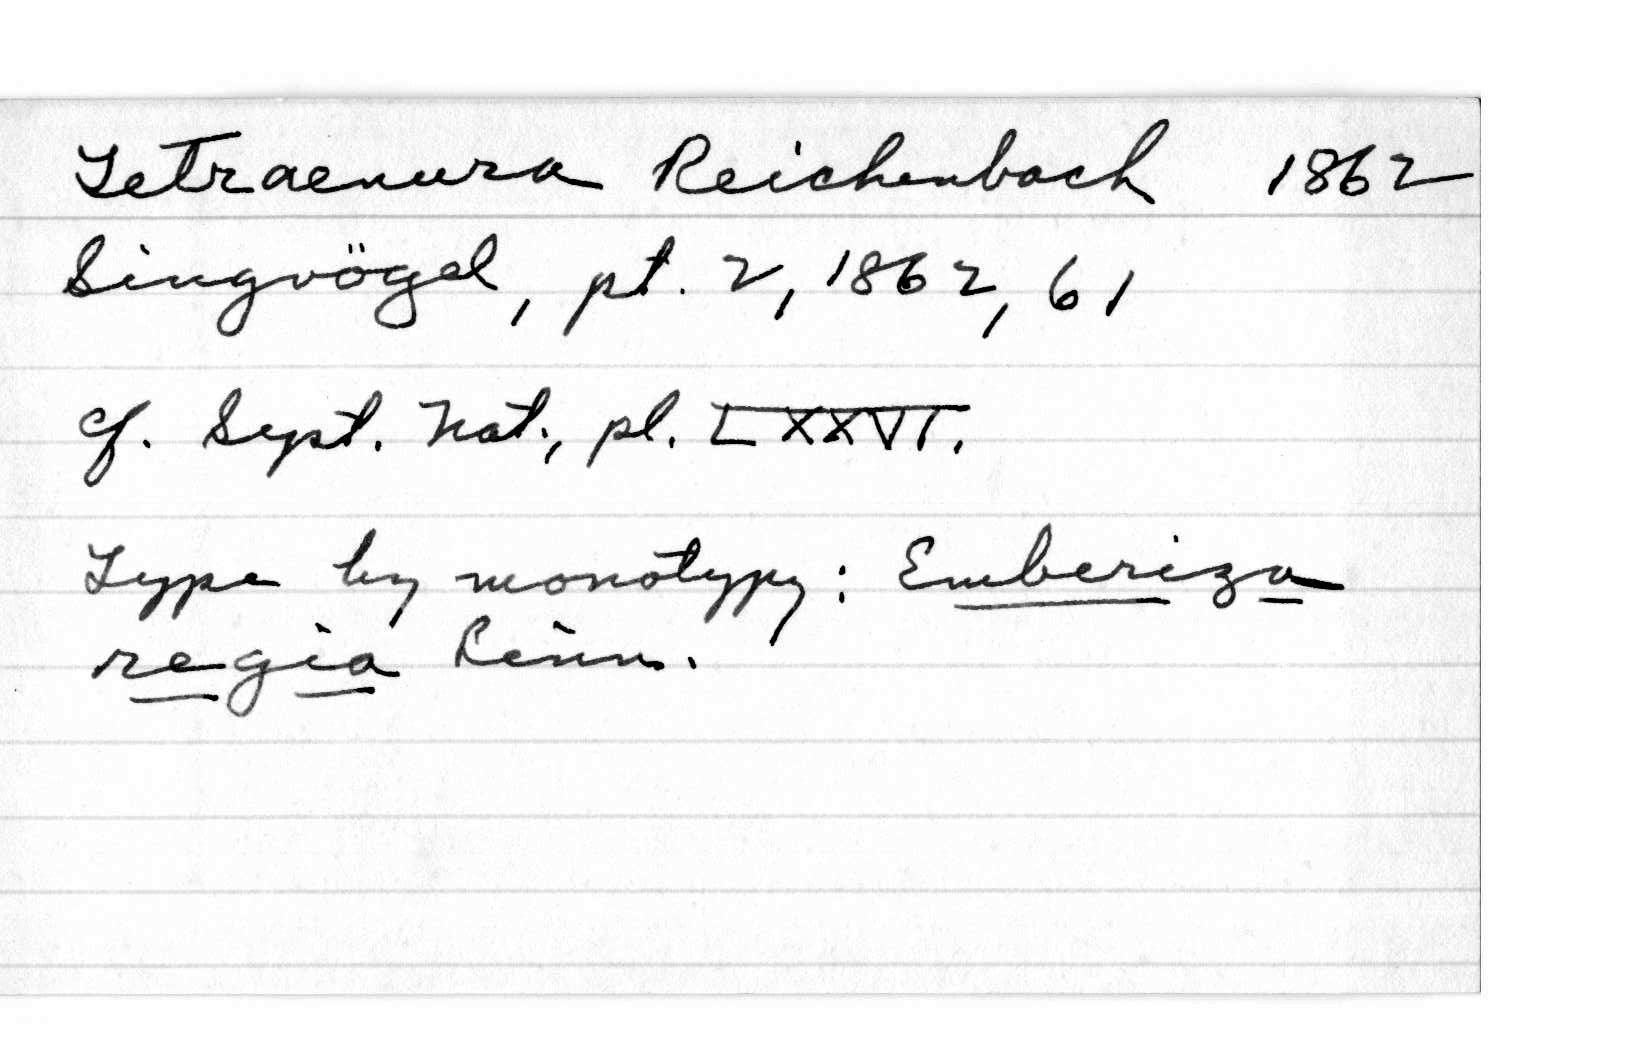 Tetraenura Reichenbach 1862
Singvögel, pt. 2, 1862, 61
cf. Syst. Nat., pl. LXXVI.
Type by monotypy: Emberiza
regia Linn.